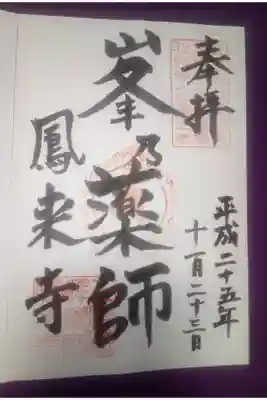 奉拝
平成二十五年
十一月二十三日
峯乃薬師
鳳来寺